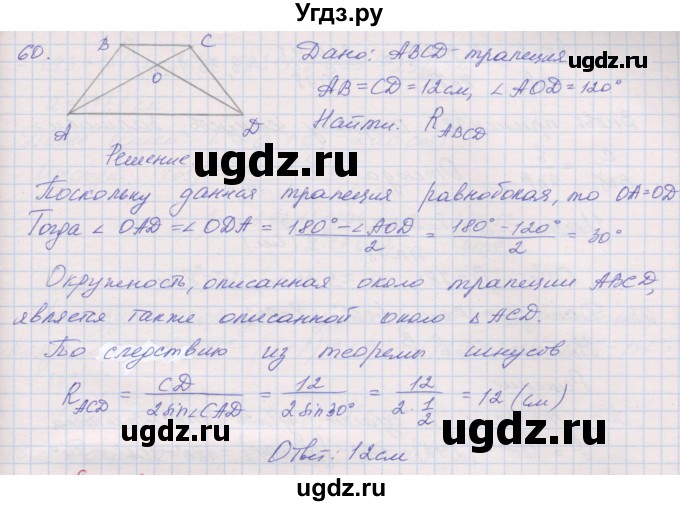 Угдз.ру
60.
B C
O
A D
Дано: ABCD - трапеция
AB = CD = 12 см, ∠AOD = 120°
Найти: R_ABCD
Решение
Поскольку данная трапеция равнобокая, то OA = OD
Тогда ∠OAD = ∠ODA = (180° - ∠AOD)/2 = (180° - 120°)/2 = 30°
Окружность, описанная около трапеции ABCD,
является также описанной около ΔACD.
По следствию из теоремы синусов
R_ACD = CD/(2sin∠CAD) = 12/(2sin30°) = 12/(2·1/2) = 12 (см)
Ответ: 12см
ugdz.ru
ugdz.ru
ugdz.ru
ugdz.ru
ugdz.ru
ugdz.ru
ugdz.ru
ugdz.ru